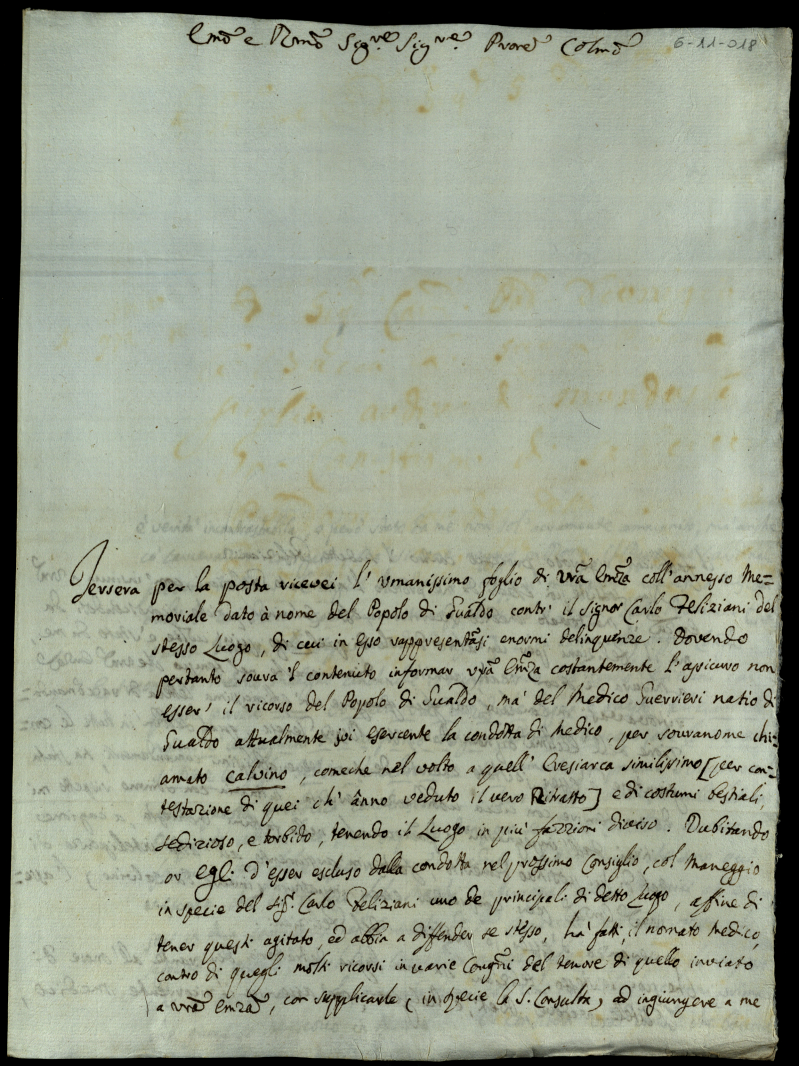 Emõ e Rmõ Sig.re Sig.re Prõne Colmõ
6-11-018
Jersera per la posta ricevei l' umanissimo foglio di vrã Emz̃a coll' annesso Me=
moriale dato à nome del Popolo di Gualdo contr' il Signor Carlo Feliziani del
stesso Luogo, di cui in esso rappresentãsi enormi delinquenze. Dovendo
pertanto sovra 'l contenuto informar vrã Emz̃a costantemente l' assicuro non
esser' il ricorso del Popolo di Gualdo, mà del Medico Guerrieri natio di
Gualdo attualmente ivi esercente la condotta di Medico, per sovranome chi=
amato calvino, comeche nel volto a quell' Eresiarca similissimo [per con=
testazione di quei ch' ãnno veduto il vero Ritratto] e di costumi bestiali,
sedizioso, e torbido, tenendo il Luogo in più fazzioni diviso. Dubitando
or egli d'esser escluso dalla condotta nel prossimo Consiglio, col maneggio
in specie del Sig.r Carlo Feliziani uno de principali di detto Luogo, affine di
tener questi agitato, ed abbia a diffender se stesso, hà fatti, il nomato Medico,
contro di quegli molti ricorsi in varie Congñi del tenore di quello inviato
a vrã Emz̃a, con supplicarle, (in specie la S. Consulta) ad ingiungere a me